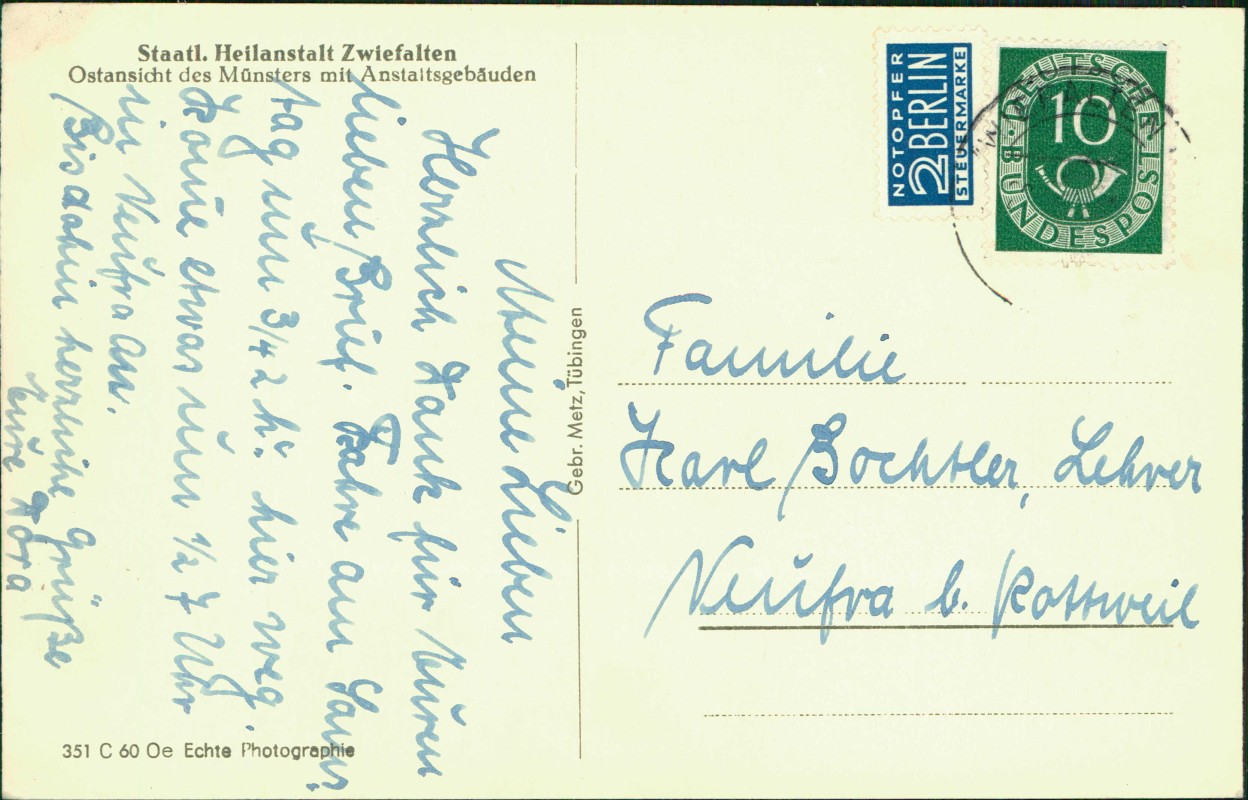 Staatl. Heilanstalt Zwiefalten
Ostansicht des Münsters mit Anstaltsgebäuden
Meine Lieben
Herzlich Dank für Euren
lieben Brief. Fahre am Sams-
tag um 3/4 2 h. hier weg.
Komme etwas um 1/2 7 Uhr
in Neufra an.
Bis dahin herzliche Grüße
Eure Dora
351 C 60 Oe Echte Photographie
Gebr. Metz, Tübingen
NOTOPFER
2 BERLIN
STEUERMARKE
DEUTSCHE
10
BUNDESPOST
Familie
Karl Bochtler, Lehrer
Neufra b. Rottweil